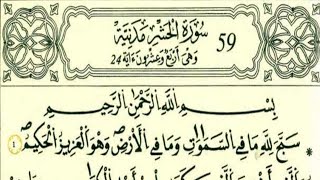 سُورَةُ الْحَشْرِ مَدَنِيَّة 59
وَهِيَ أَرْبَعٌ وَعِشْرُونَ ءَايَةً 24
بِسْمِ اللَّهِ الرَّحْمَنِ الرَّحِيمِ
سَبَّحَ لِلَّهِ مَا فِي السَّمَوَاتِ وَمَا فِي الْأَرْضِ وَهُوَ الْعَزِيزُ الْحَكِيمُ 1